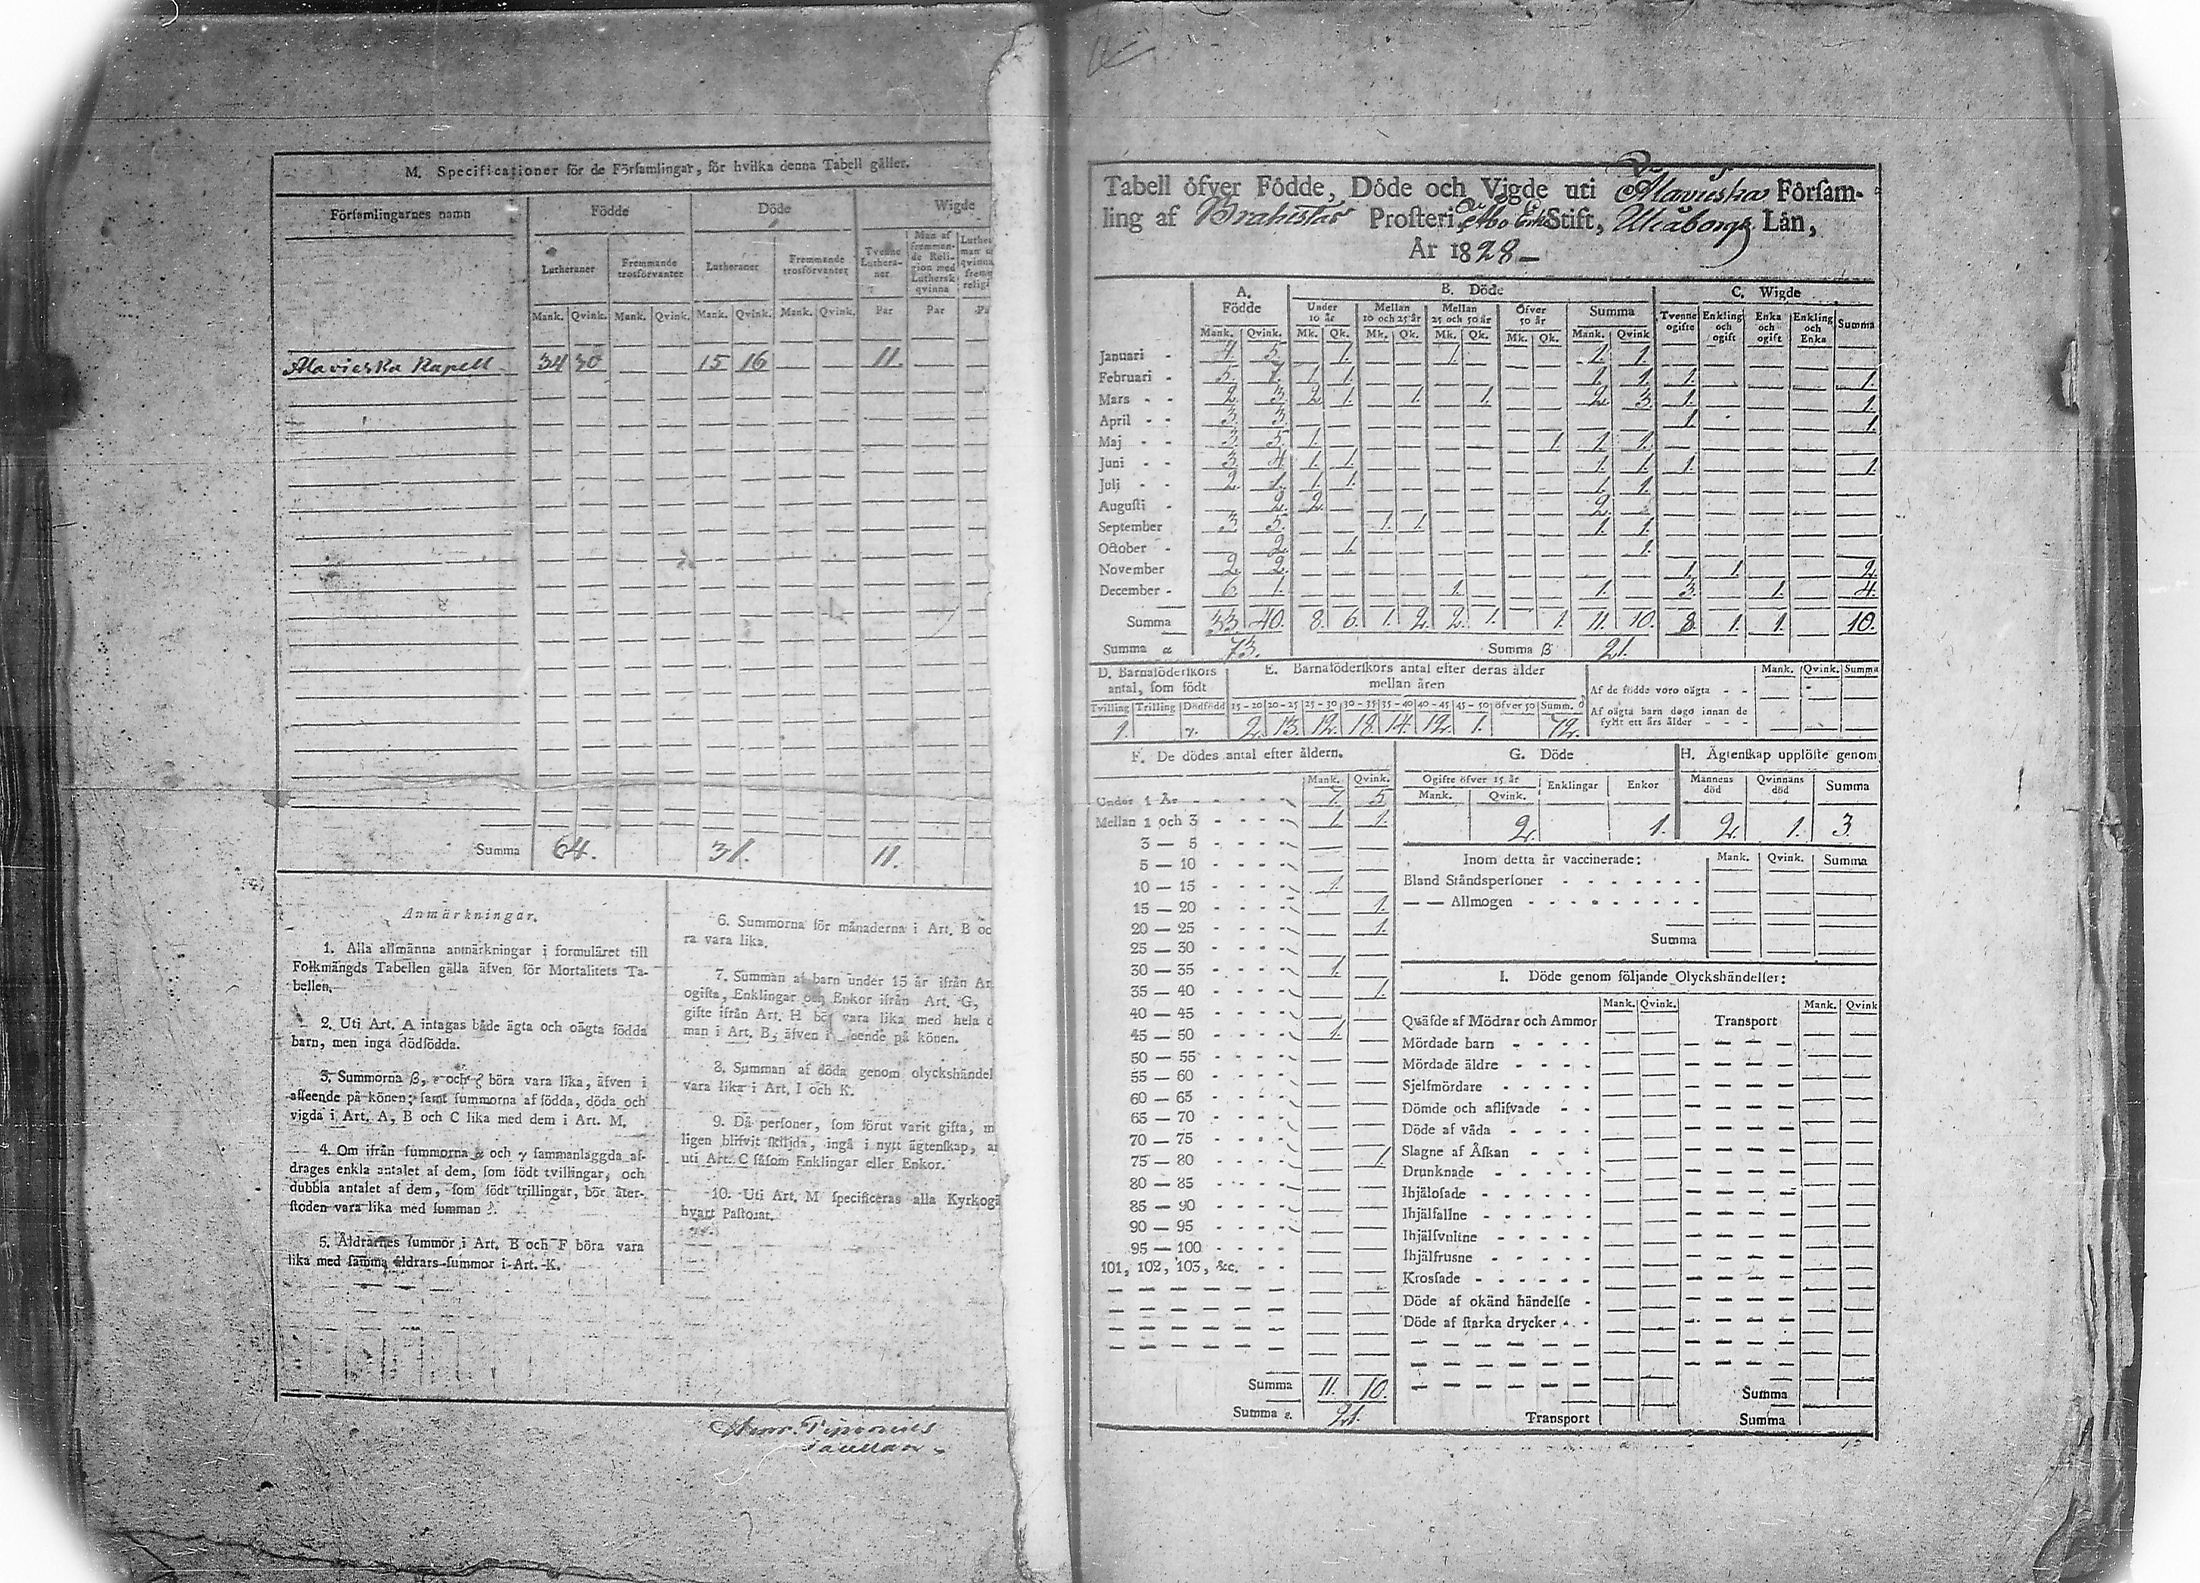 M. Specificationer för de Församlingar, för hvilka denna Tabell gäller.
Församlingarnes namn | Födde | Döde | Wigde
Lutheraner | Fremmande trosförvanter | Lutheraner | Fremmande trosförvanter | Tvenne Lutheraner | Man af fremmande Religion med Luthersk qvinna
Mank. | Qvink. | Mank. | Qvink. | Mank. | Qvink. | Mank. | Qvink. | Par | Par
Alavieska Kapell | 34 | 30 | 15 | 16 | 11.
Summa | 64. | 31. | 11.
Anmärkningar.
1. Alla allmänna anmärkningar i formuläret till
Folkmängds Tabellen gälla äfven för Mortalitets Ta-
bellen.
2. Uti Art. A intagas både ägta och oägta födda
barn, men inga dödfödda.
3. Summorna β, ε och ζ böra vara lika, äfven i
affeende på könen; samt summorna af födda, döda och
vigda i Art. A, B och C lika med dem i Art. M.
4. Om ifrån summorna α och γ sammanlaggda af-
drages enkla antalet af dem, som födt tvillingar, och
dubbla antalet af dem, som födt trillingar, bör åter-
stoden vara lika med summan δ.
5. Åldrarnes summor i Art. B och F böra vara
lika med samma åldrars summor i Art. K.
6. Summorna för månaderna i Art. B oc
ra vara lika.
7. Summan af barn under 15 år ifrån Ar
ogifta, Enklingar och Enkor ifrån Art. G,
gifte ifrån Art. H bör vara lika med hela
man i Art. B, äfven i seende på könen.
8. Summan af döda genom olyckshändel
vara lika i Art. I och K.
9. Då personer, som förut varit gifta, m
ligen blifvit skiljda, ingå i nytt ägtenskap, a
uti Art. C såsom Enklingar eller Enkor.
10. Uti Art. M specificeras alla Kyrkogä
hvart Pastorat.
Tabell öfver Födde, Döde och Vigde uti Alavieska Församling
af Brahestad Prosteri, Åbo Erke Stift, Uleåborgs Län,
År 1828
A. Födde | B. Döde | C. Wigde
Under 10 år | Mellan 10 och 25 år | Mellan 25 och 50 år | Öfver 50 år | Summa | Tvenne ogifte | Enkling och ogift | Enka och ogift | Enkling och Enka | Summa
Mank. | Qvink. | Mk. | Qk. | Mk. | Qk. | Mk. | Qk. | Mk. | Qk. | Mank. | Qvink
Januari | 4. | 5. | 1. | 1. | 1. | 1.
Februari | 5. | 7. | 1. | 1. | 1. | 1. | 1. | 1.
Mars | 2. | 3. | 2. | 1. | 1. | 1. | 2. | 3. | 1. | 1.
April | 3. | 3. | 1. | 1.
Maj | 3. | 5. | 1. | 1. | 1. | 1.
Juni | 3. | 4. | 1. | 1. | 1. | 1. | 1. | 1
Julj | 2. | 1. | 1. | 1. | 1. | 1.
Augusti | 2. | 2. | 2.
September | 3. | 5. | 1. | 1. | 1. | 1.
October | 2. | 1. | 1.
November | 2. | 2. | 1. | 1. | 2.
December | 6. | 1. | 1. | 1. | 3. | 1. | 4.
Summa | 33 | 40. | 8. | 6. | 1. | 2. | 2. | 1. | 1. | 11. | 10. | 8. | 1. | 1. | 10.
Summa α | 73. | Summa β | 21.
D. Barnaföderskors antal, som födt
Tvilling | Trilling | Dödfödd
1.
E. Barnaföderskors antal efter deras ålder mellan åren
15-20 | 20-25 | 25-30 | 30-35 | 35-40 | 40-45 | 45-50 | öfver 50 | Summ. δ
2. | 13. | 12. | 18. | 14. | 12. | 1. | 72.
Mank. | Qvink. | Summa
Af de födde voro oägta
Af oägta barn dogo innan de
fyllt ett års ålder
F. De dödes antal efter åldern.
Mank. | Qvink.
Under 1 År | 7. | 5.
Mellan 1 och 3 | 1. | 1.
3 — 5
5 — 10
10 — 15 | 1.
15 — 20 | 1.
20 — 25 | 1.
25 — 30
30 — 35 | 1.
35 — 40 | 1.
40 — 45
45 — 50 | 1.
50 — 55
55 — 60
60 — 65
65 — 70
70 — 75
75 — 80 | 1.
80 — 85
85 — 90
90 — 95
95 — 100
101, 102, 103, &c.
Summa | 11. | 10.
Summa ε. | 21.
G. Döde
Ogifte öfver 15 år | Enklingar | Enkor
Mank. | Qvink.
2. | 1.
H. Ägtenskap upplöste genom
Mannens död | Qvinnans död | Summa
2. | 1. | 3
Inom detta år vaccinerade: | Mank. | Qvink. | Summa
Bland Ståndspersoner
— — Allmogen
Summa
I. Döde genom följande Olyckshändelser:
Mank. | Qvink. | Mank. | Qvink
Quäfde af Mödrar och Ammor | Transport
Mördade barn
Mördade äldre
Sjelfmördare
Dömde och aflifvade
Döde af våda
Slagne af Åskan
Drunknade
Ihjälosade
Ihjälfallne
Ihjälsvultne
Ihjälfrusne
Krossade
Döde af okänd händelse
Döde af starka drycker
Summa
Transport | Summa